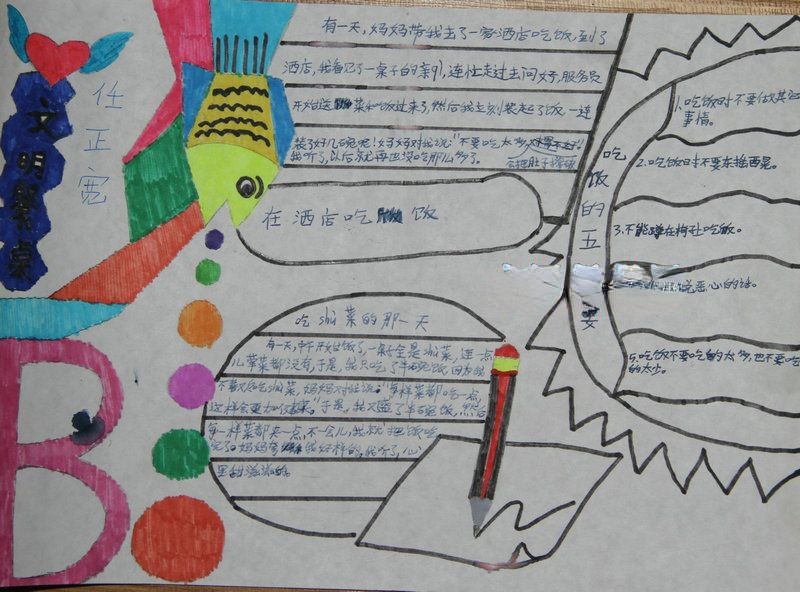 文明餐桌
任正宽
有一天,妈妈带我去了一家酒店吃饭,到了
酒店,我看见了一桌子的亲儿,连忙走过去问好,服务员
开始送菜和饭过来了,然后我立刻装起了饭一连
装了好几碗呢!妈妈对我说:"不要吃太多,
会把肚子撑破
我听了,以后就再也没吃那么多了。
在酒店吃饭
吃饭的五 要
1.吃饭时不要做其它
事情。
2.吃饭时不要东摇西晃。
3.不能蹲在椅子上吃饭。
恶心的话。
5.吃饭不要吃的太多,也不要吃
的太少。
吃 菜的那一天
有一天,中午开始饭了,一桌子全是 菜,连一点
儿荤菜都没有,于是,我只吃了半碗饭,因为我
不喜欢吃 菜,妈妈对我说:"每样菜都吃一点,
这样会更加 "于是,我又盛了半碗饭,然后
每一样菜都夹一点,不一会儿,我就把饭吃
完了妈妈夸 我好样的,我听了,心
里甜滋滋的。